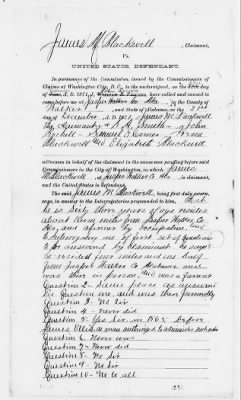 James M Blackwell, Claimant,
Vs.
UNITED STATES, DEFENDANT.
In pursuance of the Commission, issued by the Commissioners of
Claims at Washington City, D. C., to the undersigned, on the
of A. D. 1871, I have called and caused to
come before me at Jasper Walker Co Ala, in the County of
Walker, and State of Alabama, on the 2nd
day of December, A. D. 1871, James M Blackwell
the Claimant A Smith John
Samuel
Blackwell and Elizabeth Blackwell
witnesses in behalf of the Claimant in the cause now pending before said
Commissioners in the City of Washington, in which James
M Blackwell of Jasper Walker Co Ala is claimant,
and the United States is defendant.
The said James M Blackwell, being first duly sworn,
says, in answer to the Interrogatories propounded to him, that
he is Sixty three years of age resides
about miles from Jasper Walker Co
Ala, and a farmer by occupation and
to Interrogatory no 1 first set of questions
to be answered by claimants he says
he resided four miles and one half
from Jasper Walker Co Alabama and
was there in person, and was a farmer
Question 2 - Same place as answered
in Question one, and was then
Question 3 - No Sir
Question 4 - Never did
Question 5 - Yes Sir in 1862 before
James Ellis a man authorized to administer
Question 6 - Never
Question 7 - Never did
Question 8 - No Sir
Question 9 - No Sir
Question 10 - No to all